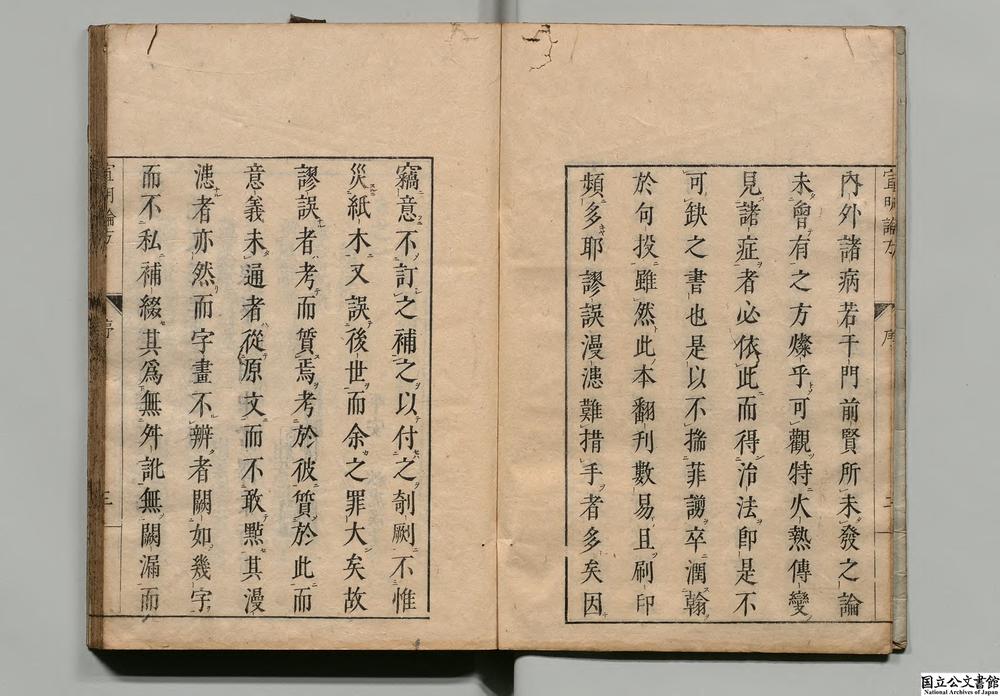 內外諸病若干門前賢所未發之論
未曾有之方燦乎可觀特火熱傳變
見諸症者必依此而得治法即是不
可缺之書也是以不揣菲謭卒濡翰
於句投雖然此本翻刊數易且刷印
頻多耶謬誤漫漶難措手者多矣因
竊意不訂之補之以付之剞劂不惟
災紙木又誤後世而余之罪大矣故
謬誤者考而質焉考於彼質於此而
意義未通者從原文而不敢點其漫
漶者亦然而字畫不辨者闕如幾字
而不私補綴其為無舛訛無闕漏而
宣明論方
序
三
国立公文書館
National Archives of Japan